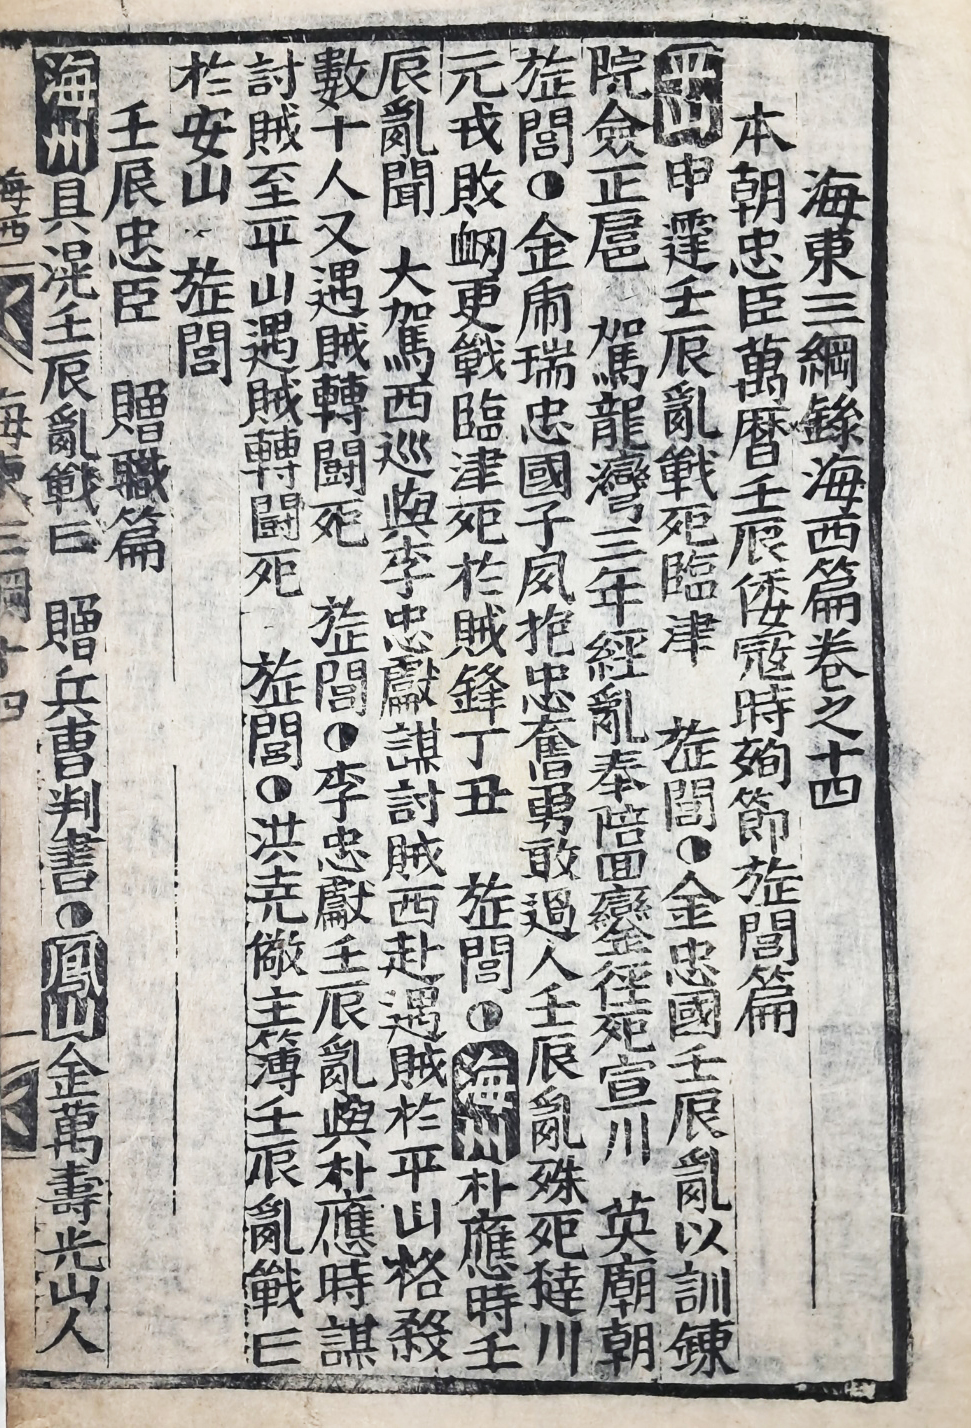 海東三綱錄海西篇卷之十四
本朝忠臣萬曆壬辰倭寇時殉節旌閭篇
平山申霆壬辰亂戰死臨津 旌閭◑金忠國壬辰亂以訓鍊
院僉正扈 駕龍灣三年經亂奉陪回鑾徑死宣川 英廟朝
旌閭◑金爾瑞忠國子夙抱忠奮勇敢過人壬辰亂殊死㺚川
元戎敗衂更戰臨津死於賊鋒丁丑 旌閭◑海州朴應時壬
辰亂聞 大駕西巡與李忠獻謀討賊西赴遇賊於平山格殺
數十人又遇賊轉鬪死 旌閭◑李忠獻壬辰亂與朴應時謀
討賊至平山遇賊轉鬪死 旌閭◑洪尭儆主簿壬辰亂戰亡
於安山 旌閭
壬辰忠臣 贈職篇
海州具滉壬辰亂戰亡 贈兵曺判書◑鳳山金萬壽光山人
海西 海東三綱十四 一